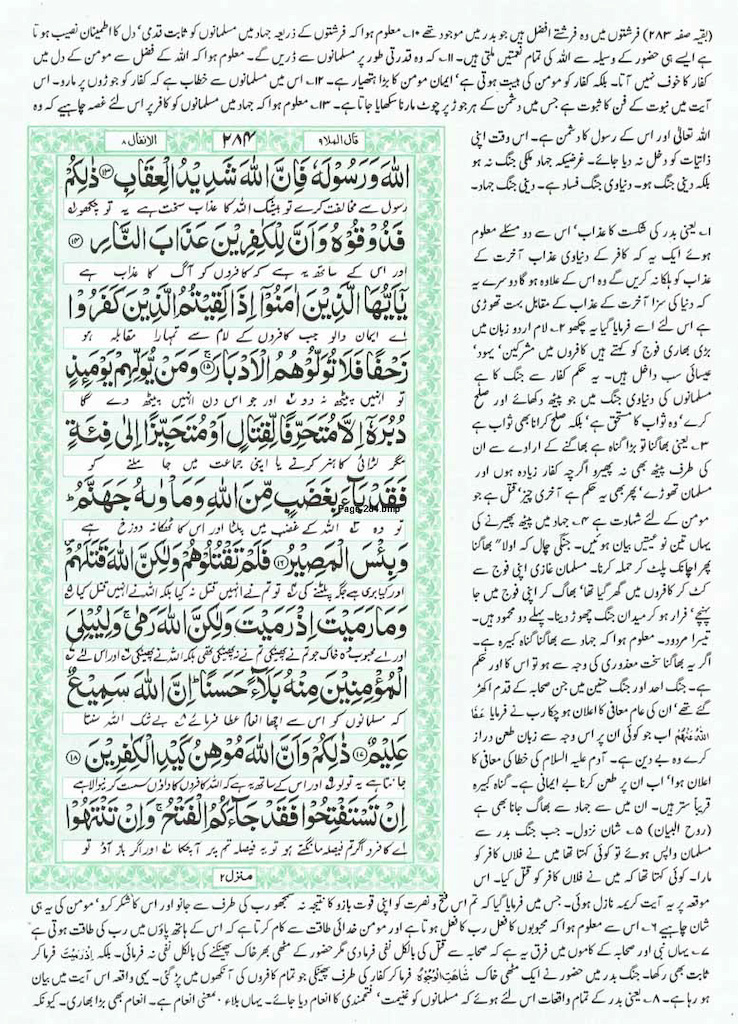 (بقیہ صفحہ ۲۸۳) فرشتوں میں وہ فرشتے افضل ہیں جو بدر میں موجود تھے ۱۰۔ معلوم ہوا کہ فرشتوں کے ذریعہ جہاد میں مسلمانوں کو ثابت قدمی' دل کا اطمینان نصیب ہوتا
ہے ایسے ہی حضور کے وسیلہ سے اللہ کی تمام نعمتیں ملتی ہیں۔ ۱۱۔ کہ وہ قدرتی طور پر مسلمانوں سے ڈریں گے۔ معلوم ہوا کہ اللہ کے فضل سے مومن کے دل میں
کفار کا خوف نہیں آتا۔ بلکہ کفار کو مومن کی ہیبت ہوتی ہے' ایمان مومن کا بڑا ہتھیار ہے۔ ۱۲۔ اس میں مسلمانوں سے خطاب ہے کہ کفار کو جوڑوں پر مارو۔ اس
آیت میں نبوت کے فن کا ثبوت ہے جس میں دشمن کے ہر جوڑ پر چوٹ مارنا سکھایا جاتا ہے۔ ۱۳۔ معلوم ہوا کہ جہاد میں مسلمانوں کو کافر پر اس لئے غصہ چاہیے کہ وہ
اللہ تعالیٰ اور اس کے رسول کا دشمن ہے۔ اس وقت اپنی
ذاتیات کو دخل نہ دیا جائے۔ غرضیکہ جہاد ملکی جنگ نہ ہو
بلکہ دینی جنگ ہو۔ دنیاوی جنگ فساد ہے۔ دینی جنگ جہاد۔
قال الملا ۹
۲۸۴
الانفال ۸
اللهَ وَرَسُولَهٗ فَاِنَّ اللهَ شَدِيْدُ الْعِقَابِ ﴿۱۳﴾ ذٰلِكُمْ
رسول سے مخالفت کرے تو بیشک اللہ کا عذاب سخت ہے یہ تو چکھو
فَذُوْقُوْهُ وَاَنَّ لِلْكٰفِرِيْنَ عَذَابَ النَّارِ ﴿۱۴﴾
اور اس کے ساتھ یہ ہے کہ کافروں کو آگ کا عذاب ہے
يٰۤاَيُّهَا الَّذِيْنَ اٰمَنُوْۤا اِذَا لَقِيْتُمُ الَّذِيْنَ كَفَرُوْا
اے ایمان والو جب کافروں کے لام سے تمہارا مقابلہ ہو
زَحْفًا فَلَا تُوَلُّوْهُمُ الْاَدْبَارَ ﴿۱۵﴾ وَمَنْ يُّوَلِّهِمْ يَوْمَئِذٍ
تو انہیں پیٹھ نہ دو اور جو اس دن انہیں پیٹھ دے گا
دُبُرَهٗۤ اِلَّا مُتَحَرِّفًا لِّقِتَالٍ اَوْ مُتَحَيِّزًا اِلٰى فِئَةٍ
مگر لڑائی کا ہنر کرنے یا اپنی جماعت میں جا ملنے کو
فَقَدْ بَآءَ بِغَضَبٍ مِّنَ اللهِ وَمَاْوٰىهُ جَهَنَّمُ ؕ
Page 284.bmp
تو وہ اللہ کے غضب میں پلٹا اور اس کا ٹھکانہ دوزخ ہے
وَبِئْسَ الْمَصِيْرُ ﴿۱۶﴾ فَلَمْ تَقْتُلُوْهُمْ وَلٰكِنَّ اللهَ قَتَلَهُمْ
اور کیا بری جگہ پلٹنے کی تو تم نے انہیں قتل نہ کیا بلکہ اللہ نے انہیں قتل کیا
وَمَا رَمَيْتَ اِذْ رَمَيْتَ وَلٰكِنَّ اللهَ رَمٰى ۚ وَلِيُبْلِيَ
اور اے محبوب وہ خاک جو تم نے پھینکی تم نے نہ پھینکی تھی بلکہ اللہ نے پھینکی اور اس لئے
الْمُؤْمِنِيْنَ مِنْهُ بَلَآءً حَسَنًا ؕ اِنَّ اللهَ سَمِيْعٌ
کہ مسلمانوں کو اس سے اچھا انعام عطا فرمائے بے شک اللہ سنتا
عَلِيْمٌ ﴿۱۷﴾ ذٰلِكُمْ وَاَنَّ اللهَ مُوْهِنُ كَيْدِ الْكٰفِرِيْنَ ﴿۱۸﴾
جانتا ہے یہ تو لو اور اس کے ساتھ یہ ہے کہ اللہ کافروں کا داؤں سست کرنیوالا ہے
اِنْ تَسْتَفْتِحُوْا فَقَدْ جَآءَكُمُ الْفَتْحُ ۚ وَاِنْ تَنْتَهُوْا
اے کافرو اگر تم فیصلہ مانگتے ہو تو یہ فیصلہ تم پر آچکا اور اگر باز آؤ تو
منزل ۲
۱۔ یعنی بدر کی شکست کا عذاب' اس سے دو مسئلے معلوم
ہوئے ایک یہ کہ کافر کے دنیاوی عذاب آخرت کے
عذاب کو ہلکا نہ کریں گے وہ اس کے علاوہ ہو گا دوسرے یہ
کہ دنیا کی سزا آخرت کے عذاب کے مقابل بہت تھوڑی
ہے اس لئے اسے فرمایا گیا یہ چکھو ۲۔ لام اردو زبان میں
بڑی بھاری فوج کو کہتے ہیں کافروں میں مشرکین' یہود'
عیسائی سب داخل ہیں۔ یہ حکم کفار سے جنگ کا ہے
مسلمانوں کی دنیاوی جنگ میں جو پیٹھ دکھائے اور صلح
کرے' وہ ثواب کا مستحق ہے' بلکہ صلح کرانا بھی ثواب ہے
۳۔ یعنی بھاگنا تو بڑا گناہ ہے بھاگنے کے ارادے سے ان
کی طرف پیٹھ بھی نہ پھیرو اگرچہ کفار زیادہ ہوں اور
مسلمان تھوڑے' پھر بھی یہ حکم ہے آخری چیز' قتل ہے جو
مومن کے لئے شہادت ہے ۴۔ جہاد میں پیٹھ پھیرنے کی
یہاں تین نوعیتیں بیان ہوئیں۔ جنگی چال کہ اولا" بھاگنا
پھر اچانک پلٹ کر حملہ کرنا۔ مسلمان غازی اپنی فوج سے
کٹ کر کافروں میں گھر گیا تھا' بھاگ کر اپنی فوج میں جا
پہنچے' فرار ہو کر میدان جنگ چھوڑ دینا۔ پہلے دو محمود ہیں۔
تیسرا مردود۔ معلوم ہوا کہ جہاد سے بھاگنا گناہ کبیرہ ہے۔
اگر یہ بھاگنا سخت معذوری کی وجہ سے ہو تو اس کا اور حکم
ہے۔ جنگ احد اور جنگ حنین میں جن صحابہ کے قدم اکھڑ
گئے تھے' ان کی عام معافی کا اعلان ہو چکا رب نے فرمایا عَفَا
اللهُ عَنْهُمْ اب جو کوئی ان پر اس وجہ سے زبان طعن دراز
کرے وہ بے دین ہے۔ آدم علیہ السلام کی خطا کی معافی کا
اعلان ہوا' اب ان پر طعن کرنا بے ایمانی ہے۔ گناہ کبیرہ
قریباً ستر ہیں۔ ان میں سے جہاد سے بھاگ جانا بھی ہے
(روح البیان) ۵۔ شان نزول۔ جب جنگ بدر سے
مسلمان واپس ہوئے تو کوئی کہتا تھا میں نے فلاں کافر کو
مارا۔ کوئی کہتا تھا کہ میں نے فلاں کافر کو قتل کیا۔ اس
موقعہ پر یہ آیت کریمہ نازل ہوئی۔ جس میں فرمایا گیا کہ تم اس فتح و نصرت کو اپنی قوت بازو کا نتیجہ نہ سمجھو رب کی طرف سے جانو اور اس کا شکر کرو' مومن کی یہ ہی
شان چاہیے ۶۔ اس سے معلوم ہوا کہ محبوبوں کا فعل رب کا فعل ہوتا ہے اور مومن خدائی طاقت سے کام کرتا ہے کہ اس کے ہاتھ پاؤں میں رب کی طاقت ہوتی ہے
۷۔ یہاں نبی اور صحابہ کے کاموں میں فرق یہ ہے کہ صحابہ سے قتل کی بالکل نفی فرما دی مگر حضور کے مٹھی بھر خاک پھینکنے کی بالکل نفی نہ فرمائی۔ بلکہ اِذْ رَمَيْتَ فرما کر
ثابت بھی رکھا۔ جنگ بدر میں حضور نے ایک مٹھی خاک شَاهَتِ الْوُجُوْهُ فرما کر کفار کی طرف پھینکی جو تمام کافروں کی آنکھوں میں پڑ گئی۔ یہی واقعہ اس آیت میں بیان
ہو رہا ہے۔ ۸۔ یعنی بدر کے تمام واقعات اس لئے ہوئے کہ مسلمانوں کو غنیمت' فتحمندی کا انعام دیا جائے۔ یہاں بلاء بمعنی انعام ہے۔ انعام بھی بڑا بھاری۔ کیونکہ